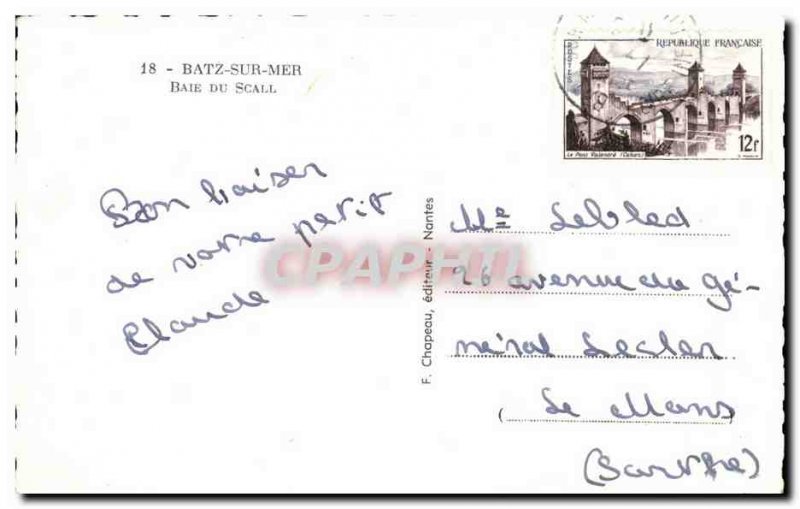 18 - BATZ-SUR-MER
BAIE DU SCALL
Bon baiser
de votre petit
Claude
F. Chapeau, éditeur - Nantes
CPAPHIL
POSTES
REPUBLIQUE FRANÇAISE
12f
Le Pont Valentré (Cahors)
Mle Lebled
26 avenue du gé-
néral Lecler
(Le Mans
(Sarthe)